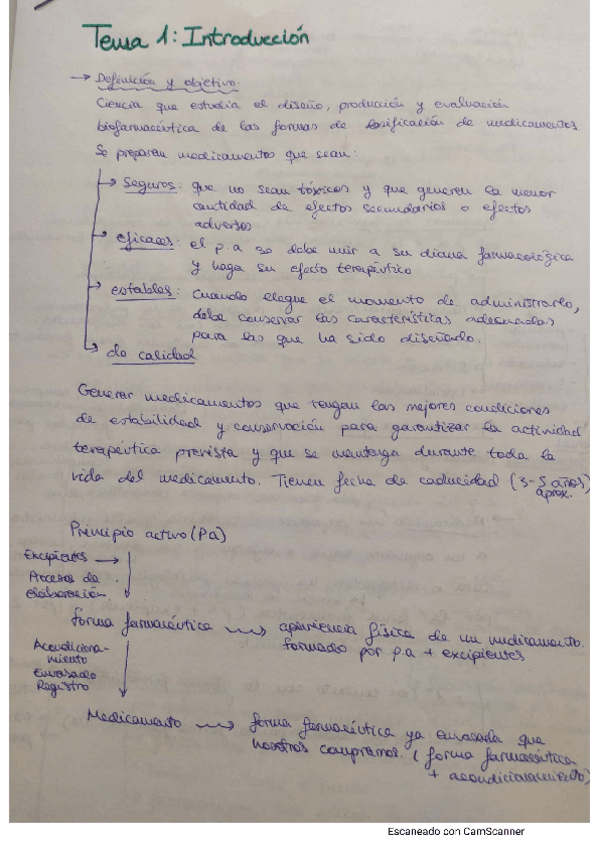 Tema 1: Introducción
→ Definición y objetivo.
Ciencia que estudia el diseño, producción y evaluación
biofarmacéutica de las formas de dosificación de medicamentos.
Se preparan medicamentos que sean:
→ Seguros: que no sean tóxicos y que generen la menor
cantidad de efectos secundarios o efectos
adversos
→ eficaces: el p.a debe unir a su diana farmacológica
y haga su efecto terapéutico
→ estables: Cuando llegue el momento de administrarlo,
debe conservar las características adecuadas
para las que ha sido diseñado.
→ de calidad
Generar medicamentos que tengan las mejores condiciones
de estabilidad y conservación para garantizar la actividad
terapéutica prevista y que se mantenga durante toda la
vida del medicamento. Tienen fecha de caducidad (3-5 años)
aprox.
Principio activo (Pa)
Excipientes →
Procesos de
elaboración
forma farmacéutica → apariencia física de un medicamento.
formado por p.a + excipientes
Acondiciona-
miento
Envasado
Registro
Medicamento → forma farmacéutica ya envasada que
nosotros compramos. (forma farmacéutica
+ acondicionamiento)
Escaneado con CamScanner